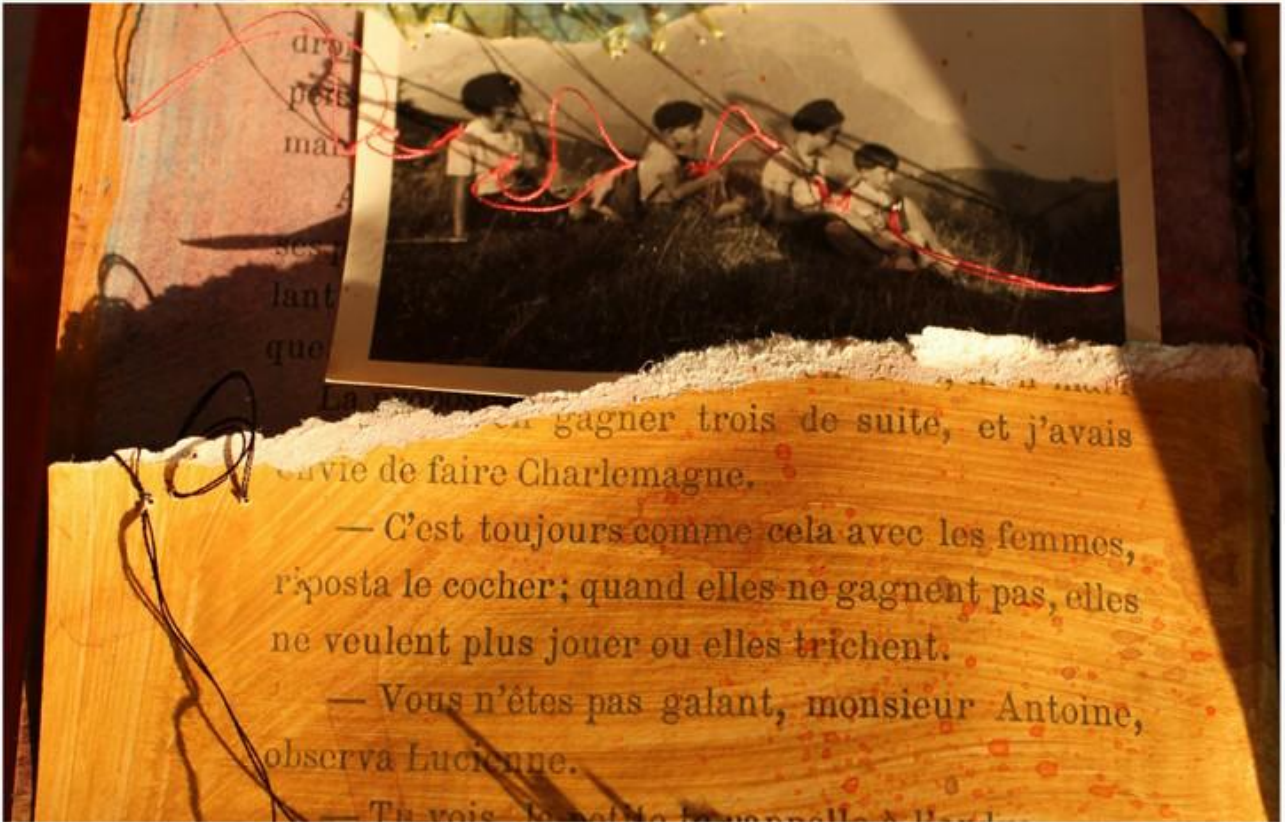 mai
ses
lant
que
La
gagner trois de suite, et j'avais
envie de faire Charlemagne.
— C'est toujours comme cela avec les femmes,
riposta le cocher; quand elles ne gagnent pas, elles
ne veulent plus jouer ou elles trichent.
— Vous n'êtes pas galant, monsieur Antoine,
observa Lucienne.
— Tu vois, la petite te rappelle à l'ordre